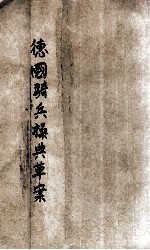 德國骑兵操典草案